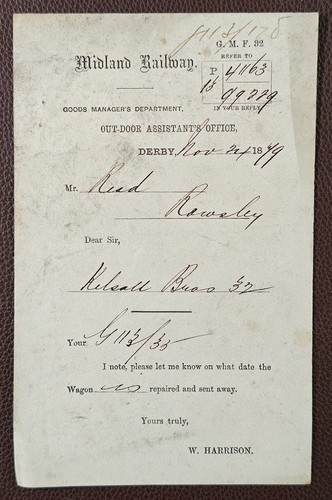 G. M. F. 32
Midland Railway.
REFER TO
P 4163
15 99229
IN YOUR REPLY
GOODS MANAGER'S DEPARTMENT,
OUT-DOOR ASSISTANT'S OFFICE,
DERBY, Nov 24 1879
Mr. Read
Rowsley
Dear Sir,
Kelsall Bros 32
Your
I note, please let me know on what date the
Wagon is repaired and sent away.
Yours truly,
W. HARRISON.